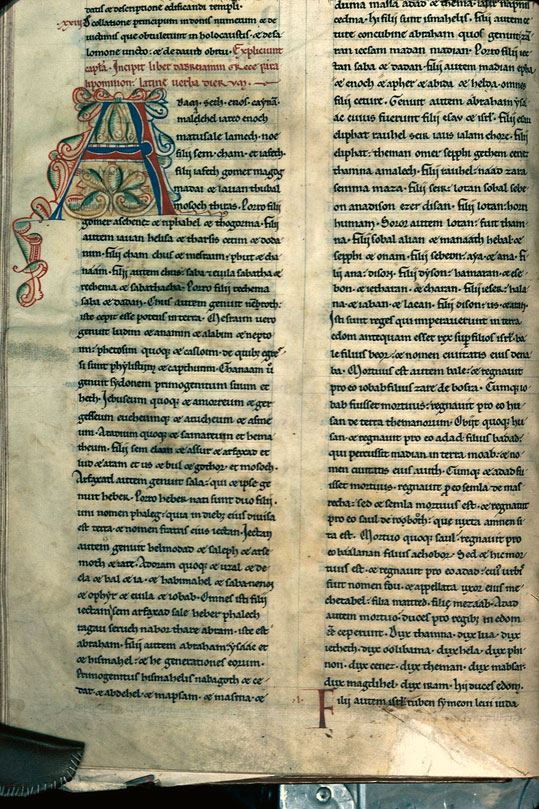 datis & descriptione edificandi templi.
xxiiii Collatione principum in donis numerum & de
uictimis que obtulerunt in holocaustis. & de sa
lomone uncto: & de dauid obitu. Expliciunt
capla. Incipit liber dabreiamin grece para
lipomenon: latine uerba dierum.
Adam. seth. enos.
malelehel iareth enoch
matusale lamech. noe
filii sem. cham. & iafeth.
filii iafeth gomer magog
madai & iauan thubal
mosoch thiras. Porro filii
gomer aschenez & riphahel & thogorma. Filii
autem iauan helisa & tharsis cetim & doda
nim. Filii cham chus & mesraim. phut & cha
naan. Filii autem chus: saba & euila sabatha &
rechema & sabathacha. Porro filii rechema
saba & dadan. Chus autem genuit nebroth:
iste cepit esse potens in terra. Mesraim uero
genuit ludim & anamin & alabim & nepto
im: phetosim quoque & casloim. de quibus egres
si sunt phylistiim & capthurim. Chanaam uero
genuit sydonem primogenitum suum et
heth. Iebuseum quoque & amorreum & ger
geseum eucheumque & aracheum & asine
um. Aradium quoque & samareum et hema
theum. Filii sem elam & assur & arfaxad et
lud & aram et us & hul & gothor. et mosoch.
Arfaxad autem genuit sala: qui & ipse ge
nuit heber. Porro heber nati sunt duo filii.
uni nomen phaleg: quia in diebus eius diuisa
est terra. & nomen fratris eius iectan. Iectan
autem genuit helmodad & saleph & asse
moth & iare. Adoram quoque & uzal. & de
cla & bal & ia. & babimahel & saba. necnon
& ophyr & euila & iobab. Omnes isti filii
iectan. sem arfaxad sale heber phalech
ragau seruch nabor thare abram. iste est
abraham. Filii autem abraham: ysaac et
& hismahel. & he generationes eorum.
Primogenitus hismahelis nabagoth & ce
dar. & abdehel & mapsam. & masma &
duma massa adad & thema. iapir naphis
cedma. hi filii sunt ismahelis. Filii autem ce
ture concubine abraham. quos genuit: za
ram iecsam madan madian. Porro filii iec
tan saba & dadan. Filii autem madian epha
& enoch & apher & abida & helda. omnes
filii ceture. Genuit autem abraham ysa
ac cuius fuerunt filii esau & isrl. Filii esau
eliphat rauhel seir iaus ialam chore. Filii
eliphat: theman omer sepphi gethem cenez
thamna amalech. Filii rauhel: naad zara
semma maza. Filii seir: lotan sobal sebe
on ana dison ezer disan. Filii lotan: horri
humam. Soror autem lotan: fuit tham
na. Filii sobal alian & manaath hebal &
sepphi & onam. Filii sebeon: aya. & ana. Fi
lii ana: dison. Filii dyson: hamaran & ese
bon. & iethran. & charan. Filii ieser: bala
na. & iaban. & iacan. Filii dison: us. & aran.
Isti sunt reges qui imperauerunt in terra
edom antequam esset rex super filios isrl. ba
le filius beor: & nomen ciuitatis eius dena
ba. Mortuus est autem bale: & regnauit
pro eo iobab filius zare de bosra. Cumque io
bab fuisset mortuus: regnauit pro eo hu
san de terra themanorum. Obiit quoque hu
san. & regnauit pro eo adad filius badad:
qui percussit madian in terra moab: & no
men ciuitatis eius auith. Cumque & adad fu
isset mortuus. regnauit pro eo semla de mas
recha: sed & semla mortuus est. & regnauit
pro eo saul de roboth: que iuxta amnem si
ta est. Mortuo quoque saul: regnauit pro
eo baalanan filius achobor. Sed & hic mor
tuus est. & regnauit pro eo adad: cuius urbis
fuit nomen fou. & appellata uxor eius me
hetabel: filia matred. filie mezaab. Adad
autem mortuo: duces pro regibus in edom
esse ceperunt. Dux thamna. dux iaia. dux
ietheth. dux oolibama. dux hela. dux phi
non. dux cenez. dux theman. dux mabsar.
dux magdihel. dux iram. hii duces edom.
.i. Filii autem isrl: ruben symeon leui iuda